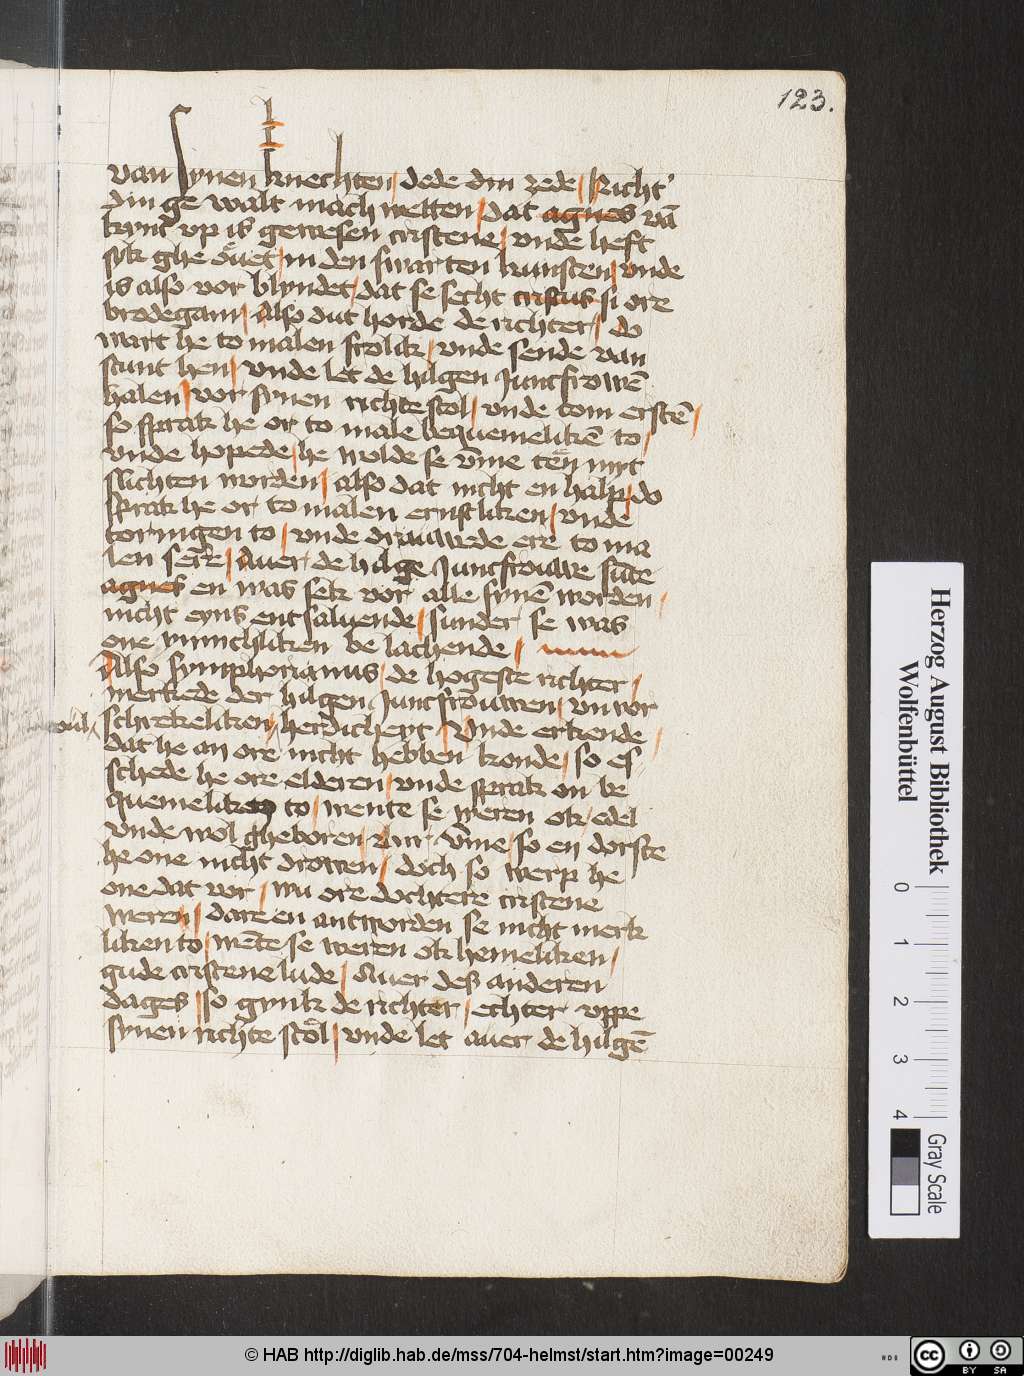 123.
van synen knechten / dede om zede / Richt'
din ge walt mach wetten / dat agnes vā
kynt vp is gewesen cristene / vnde heft
syk ghe ouet / in den swarten kunsten / vnde
is also vor blyndet / dat se secht cristus si ore
brodegam / Also dut horde de richter / do
wart he to malen frolik / vnde sende van
stunt hen / vnde let de hilgen Juncfrowē
halen / vor synen richte stol / vnde tom erstē /
so sprak he or to male bequemelikē to /
vnde hopede / he wolde se v̄me tēn myt
slichten worden / also dat nicht en halp / do
sprak he or to malen ernstliken / vnde
torningen to / vnde drauwede ere to ma
len sere / Auer de hilge Juncfrouwe sūte
agnes en was sek vor alle synē worden /
nicht eyns entsaluende / sunder se was
one mynchliken be lachende /
Also symphorianus / de hogeste richter /
merkede der hilgen Juncfrouwen / vn vor
schrekeliken / herdicheyt / Vnde erkende /
dat he an ore nicht hebben konde / so es
schede he ore elderen / vnde sprak on be
quemeliken to / wente se weren ok / edel
vnde wol gheboren / dar v̄me / so en dorste
he one nicht drowen / doch so werp he
one dat vor / wu ore dochtere cristene
weren / dare en antworden se nicht merk
liken to / wēte se weren ok hemeliken /
gude cristene lude / Auer des anderen
dages / so gynk de richter / echter vppe
synen richte stol / vnde let auer de hilgē
Herzog August Bibliothek
Wolfenbüttel
0 1 2 3 4
Gray Scale
© HAB http://diglib.hab.de/mss/704-helmst/start.htm?image=00249
HAB
cc BY SA